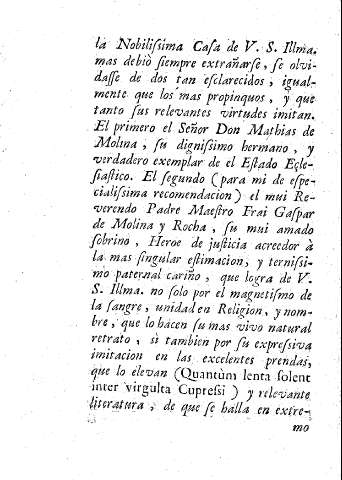 la Nobilissima Casa de V. S. Illma.
mas debiò siempre extrañarse, se olvi-
dasse de dos tan esclarecidos, igual-
mente que los mas propinquos, y que
tanto sus relevantes virtudes imitan.
El primero el Señor Don Mathias de
Molina, su dignissimo hermano, y
verdadero exemplar de el Estado Ecle-
siastico. El segundo (para mi de espe-
cialissima recomendacion) el mui Re-
verendo Padre Maestro Frai Gaspar
de Molina y Rocha, su mui amado
sobrino, Heroe de justicia acreedor à
la mas singular estimacion, y ternissi-
mo paternal cariño, que logra de V.
S. Illma. no solo por el magnetismo de
la sangre, unidad en Religion, y nom-
bre, que lo hacen su mas vivo natural
retrato, si tambien por su expressiva
imitacion en las excelentes prendas,
que lo elevan (Quantùm lenta solent
inter virgulta Cupressi) y relevante
literatura, de que se halla en extre-
mo